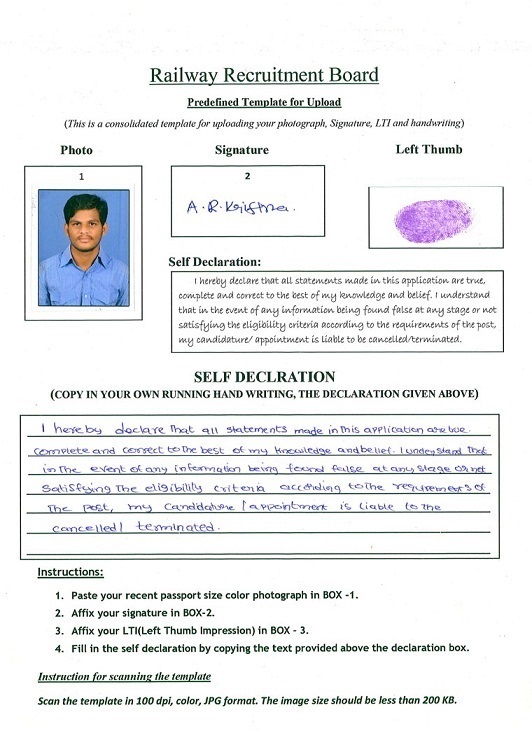 Railway Recruitment Board
Predefined Template for Upload
(This is a consolidated template for uploading your photograph, Signature, LTI and handwriting)
Photo Signature Left Thumb
1
2
A.R.Krishna.
Self Declaration:
I hereby declare that all statements made in this application are true,
complete and correct to the best of my knowledge and belief. I understand
that in the event of any information being found false at any stage or not
satisfying the eligibility criteria according to the requirements of the post,
my candidature/ appointment is liable to be cancelled/terminated.
SELF DECLRATION
(COPY IN YOUR OWN RUNNING HAND WRITING, THE DECLARATION GIVEN ABOVE)
I hereby declare that all statements made in this application are true.
complete and correct to the best of my knowledge and belief. I understand that
in the event of any information being found false at any stage or not
satisfying The eligibility criteria according to the requirements of
The post, my candidature / appointment is liable to The
cancelled / terminated.
Instructions:
1. Paste your recent passport size color photograph in BOX -1.
2. Affix your signature in BOX-2.
3. Affix your LTI(Left Thumb Impression) in BOX - 3.
4. Fill in the self declaration by copying the text provided above the declaration box.
Instruction for scanning the template
Scan the template in 100 dpi, color, JPG format. The image size should be less than 200 KB.